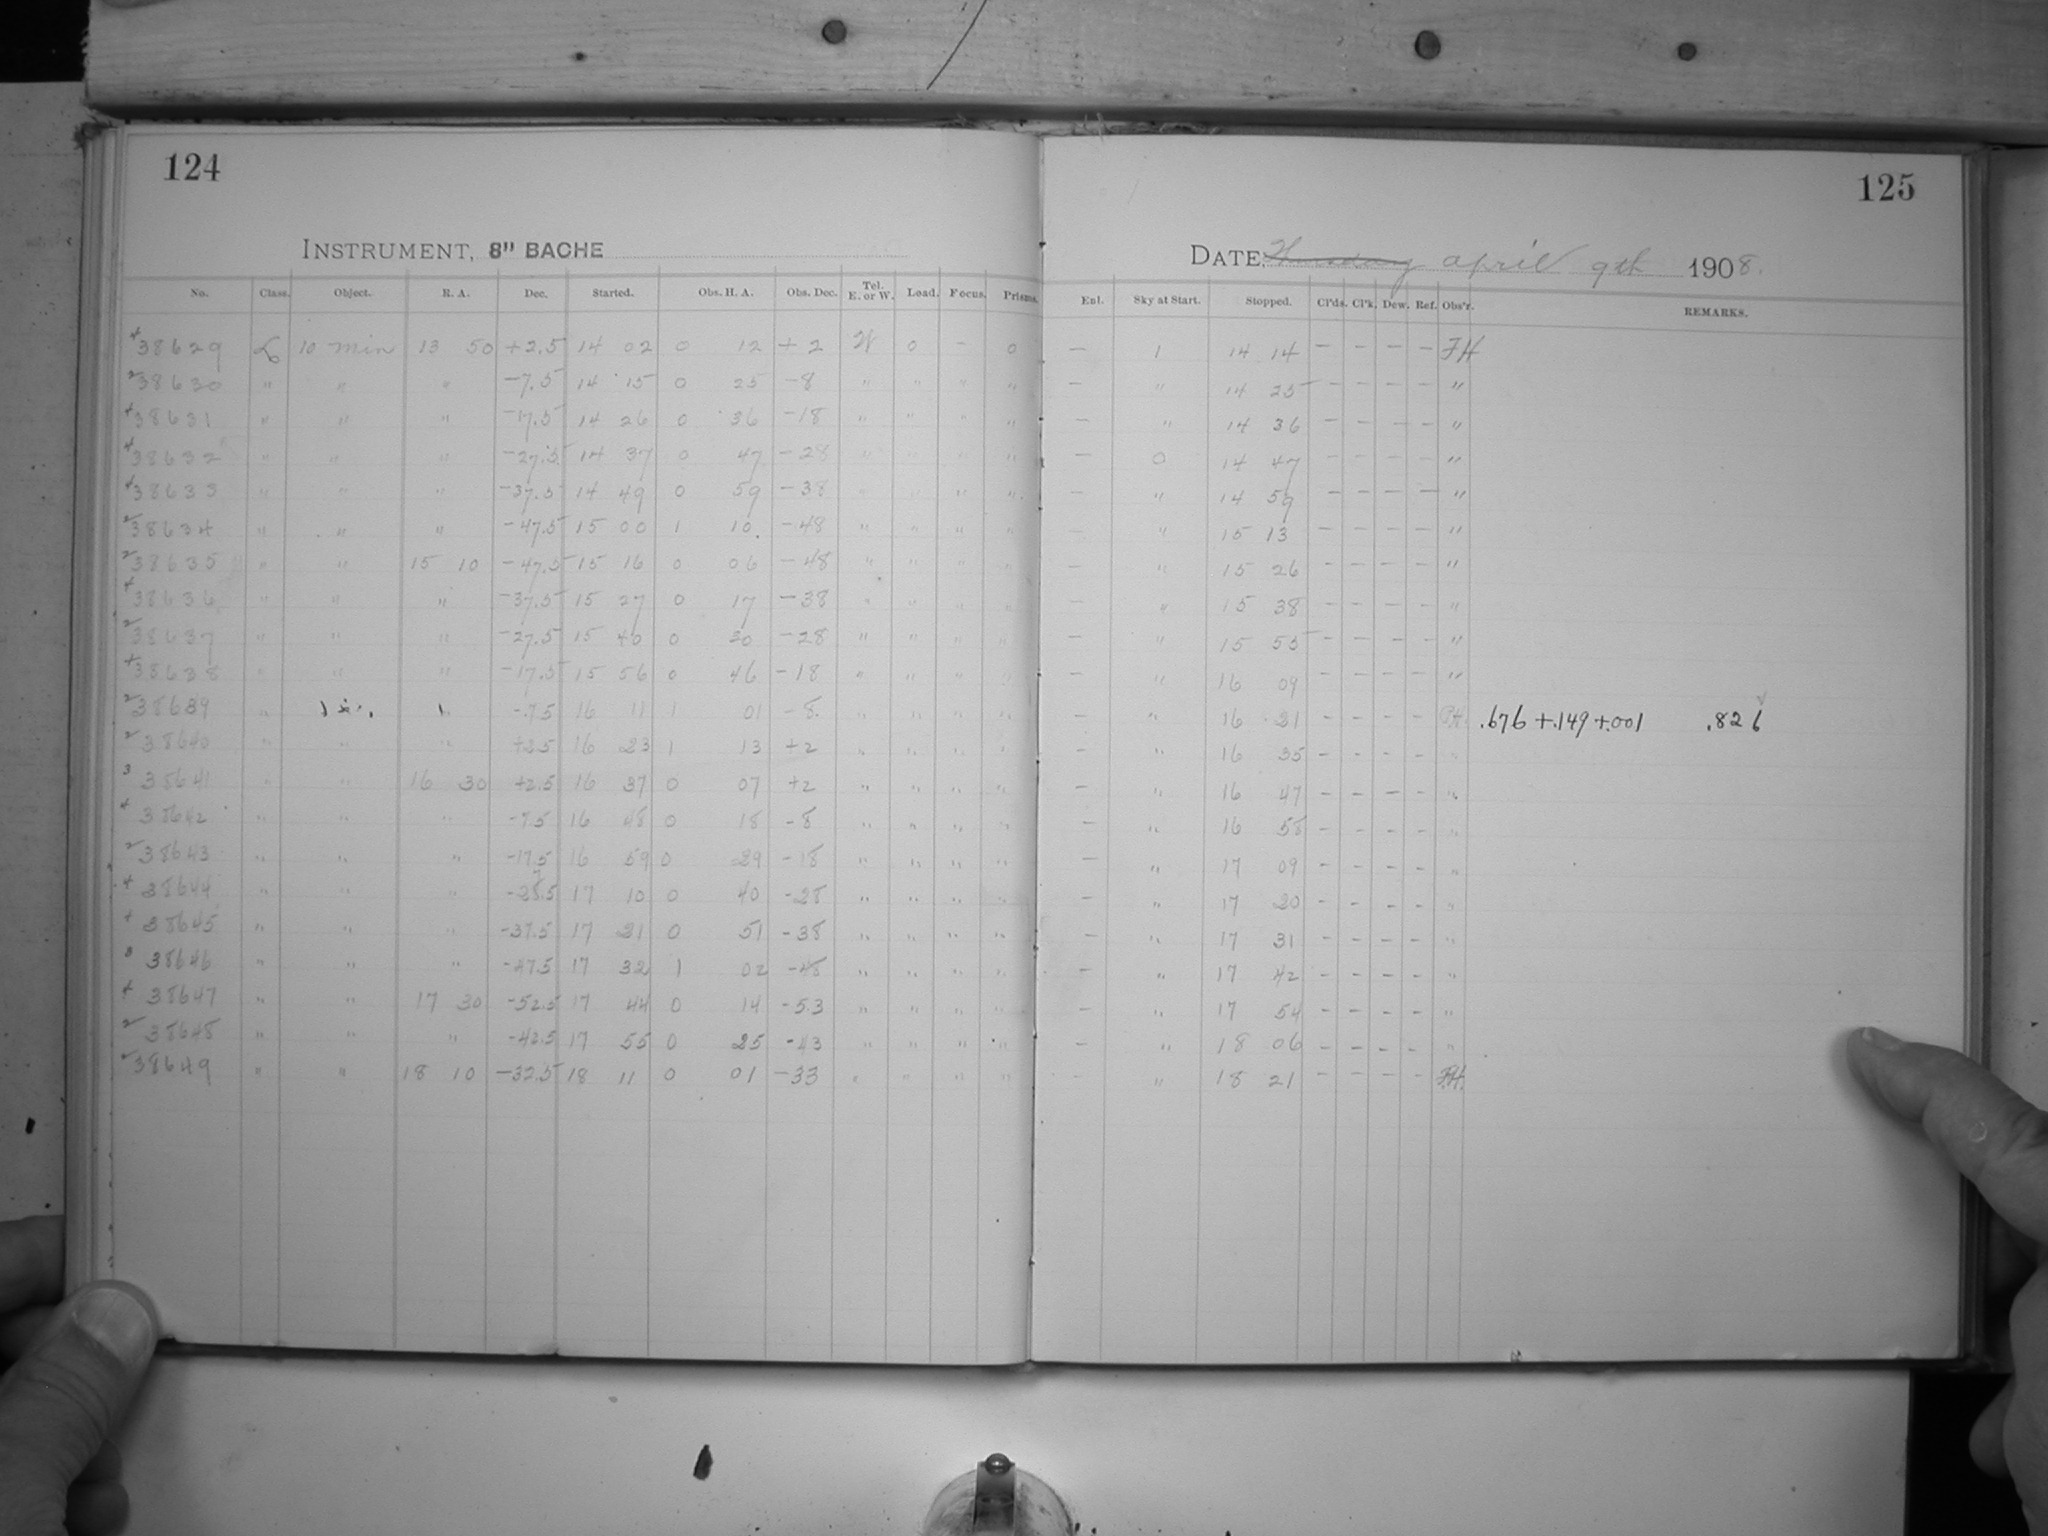 124
125
INSTRUMENT, 8" BACHE
DATE, Thursday april 9th 1908.
No. Class. Object. R. A. Dec. Started. Obs. H. A. Obs. Dec. Tel. E. or W. Load. Focus. Prisms. Enl. Sky at Start. Stopped. Cl'ds. Cl'k. Dew. Ref. Obs'r. REMARKS.
38629 L 10 min 13 50 +2.5 14 02 0 12 +2 W 0 - 0 - 1 14 14 - - - - FH
38630 " " " -7.5 14 15 0 25 -8 " " " " - " 14 25 - - - - "
38631 " " " -17.5 14 26 0 36 -18 " " " " - " 14 36 - - - - "
38632 " " " -27.5 14 37 0 47 -28 " " " " - 0 14 47 - - - - "
38633 " " " -37.5 14 49 0 59 -38 " " " " - " 14 59 - - - - "
38634 " " " -47.5 15 00 1 10 -48 " " " " - " 15 13 - - - - "
38635 " " 15 10 -47.5 15 16 0 06 -48 " " " " - " 15 26 - - - - "
38636 " " " -37.5 15 27 0 17 -38 " " " " - " 15 38 - - - - "
38637 " " " -27.5 15 40 0 30 -28 " " " " - " 15 55 - - - - "
38638 " " " -17.5 15 56 0 46 -18 " " " " - " 16 09 - - - - "
38639 " " " -7.5 16 11 1 01 -8 " " " " - " 16 21 - - - - F.H. .676 +.149 +.001 .826
38640 " " " +2.5 16 23 1 13 +2 " " " " - " 16 35 - - - - "
38641 " " 16 30 +2.5 16 37 0 07 +2 " " " " - " 16 47 - - - - "
38642 " " " -7.5 16 48 0 18 -8 " " " " - " 16 58 - - - - "
38643 " " " -17.5 16 59 0 29 -18 " " " " - " 17 09 - - - - "
38644 " " " 17 10 0 40 -28 " " " " - " 17 20 - - - - "
38645 " " " -37.5 17 21 0 51 -38 " " " " - " 17 31 - - - - "
38646 " " " -47.5 17 32 1 02 -48 " " " " - " 17 42 - - - - "
38647 " " 17 30 -52.5 17 44 0 14 -53 " " " " - " 17 54 - - - - "
38648 " " " -42.5 17 55 0 25 -43 " " " " - " 18 06 - - - - "
38649 " " 18 10 -32.5 18 11 0 01 -33 " " " " - " 18 21 - - - - F.H.